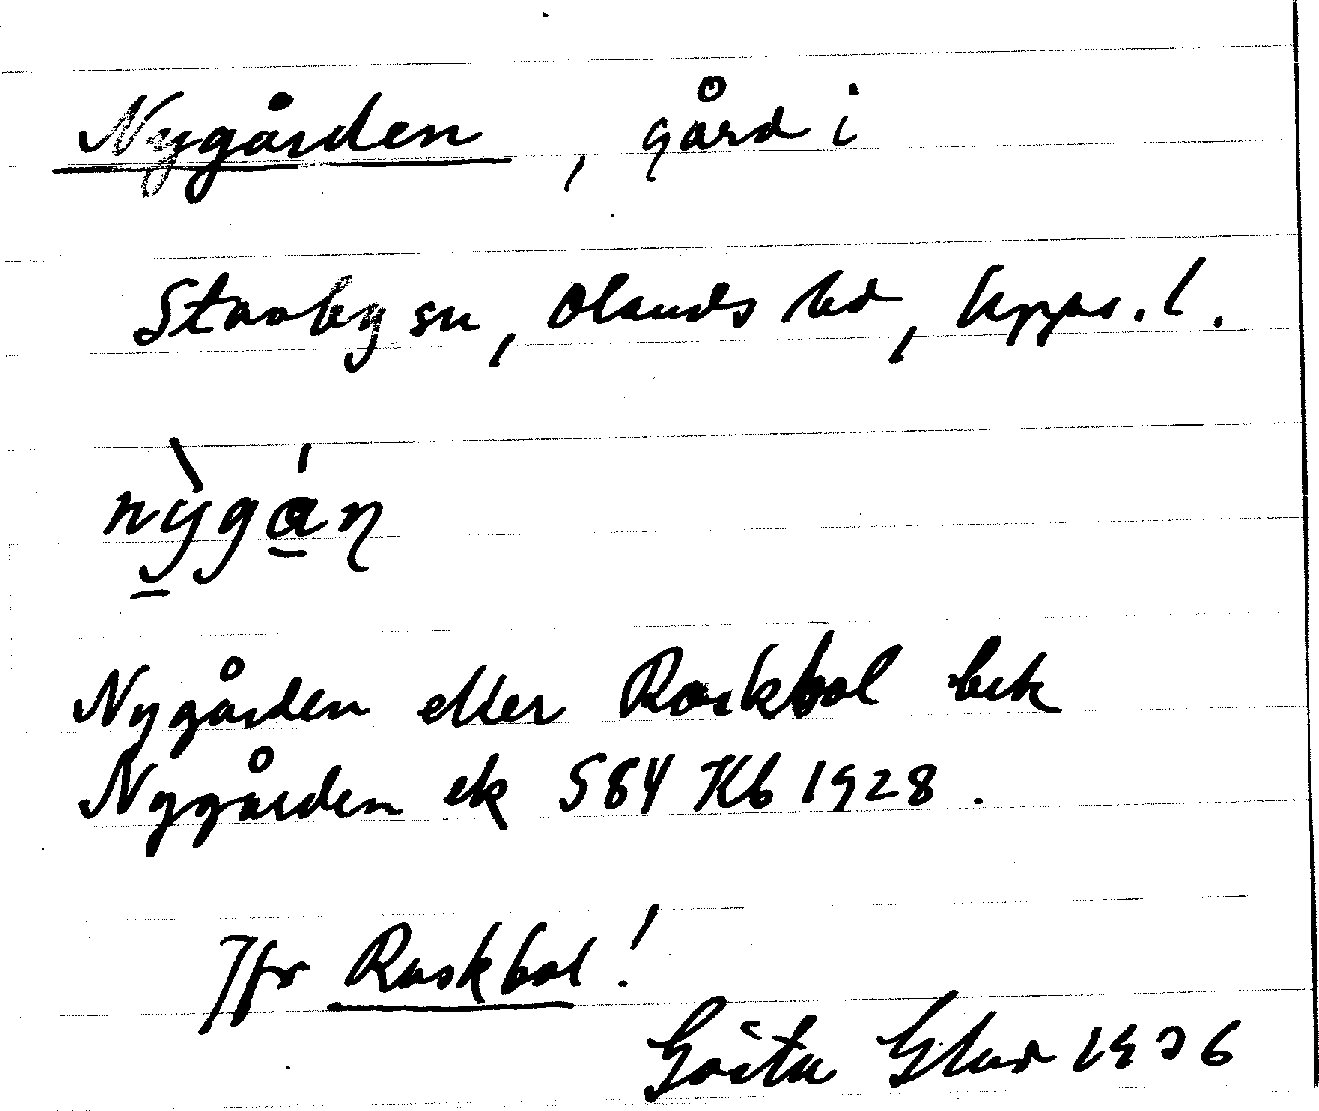 Nygården, gård i
Stavby sn, Olands hd, Upps. l.
nỳgán
Nygården eller Raskbol bek
Nygården ek S 84 Kb 1928.
Jfr Raskbol!
Gösta 1936